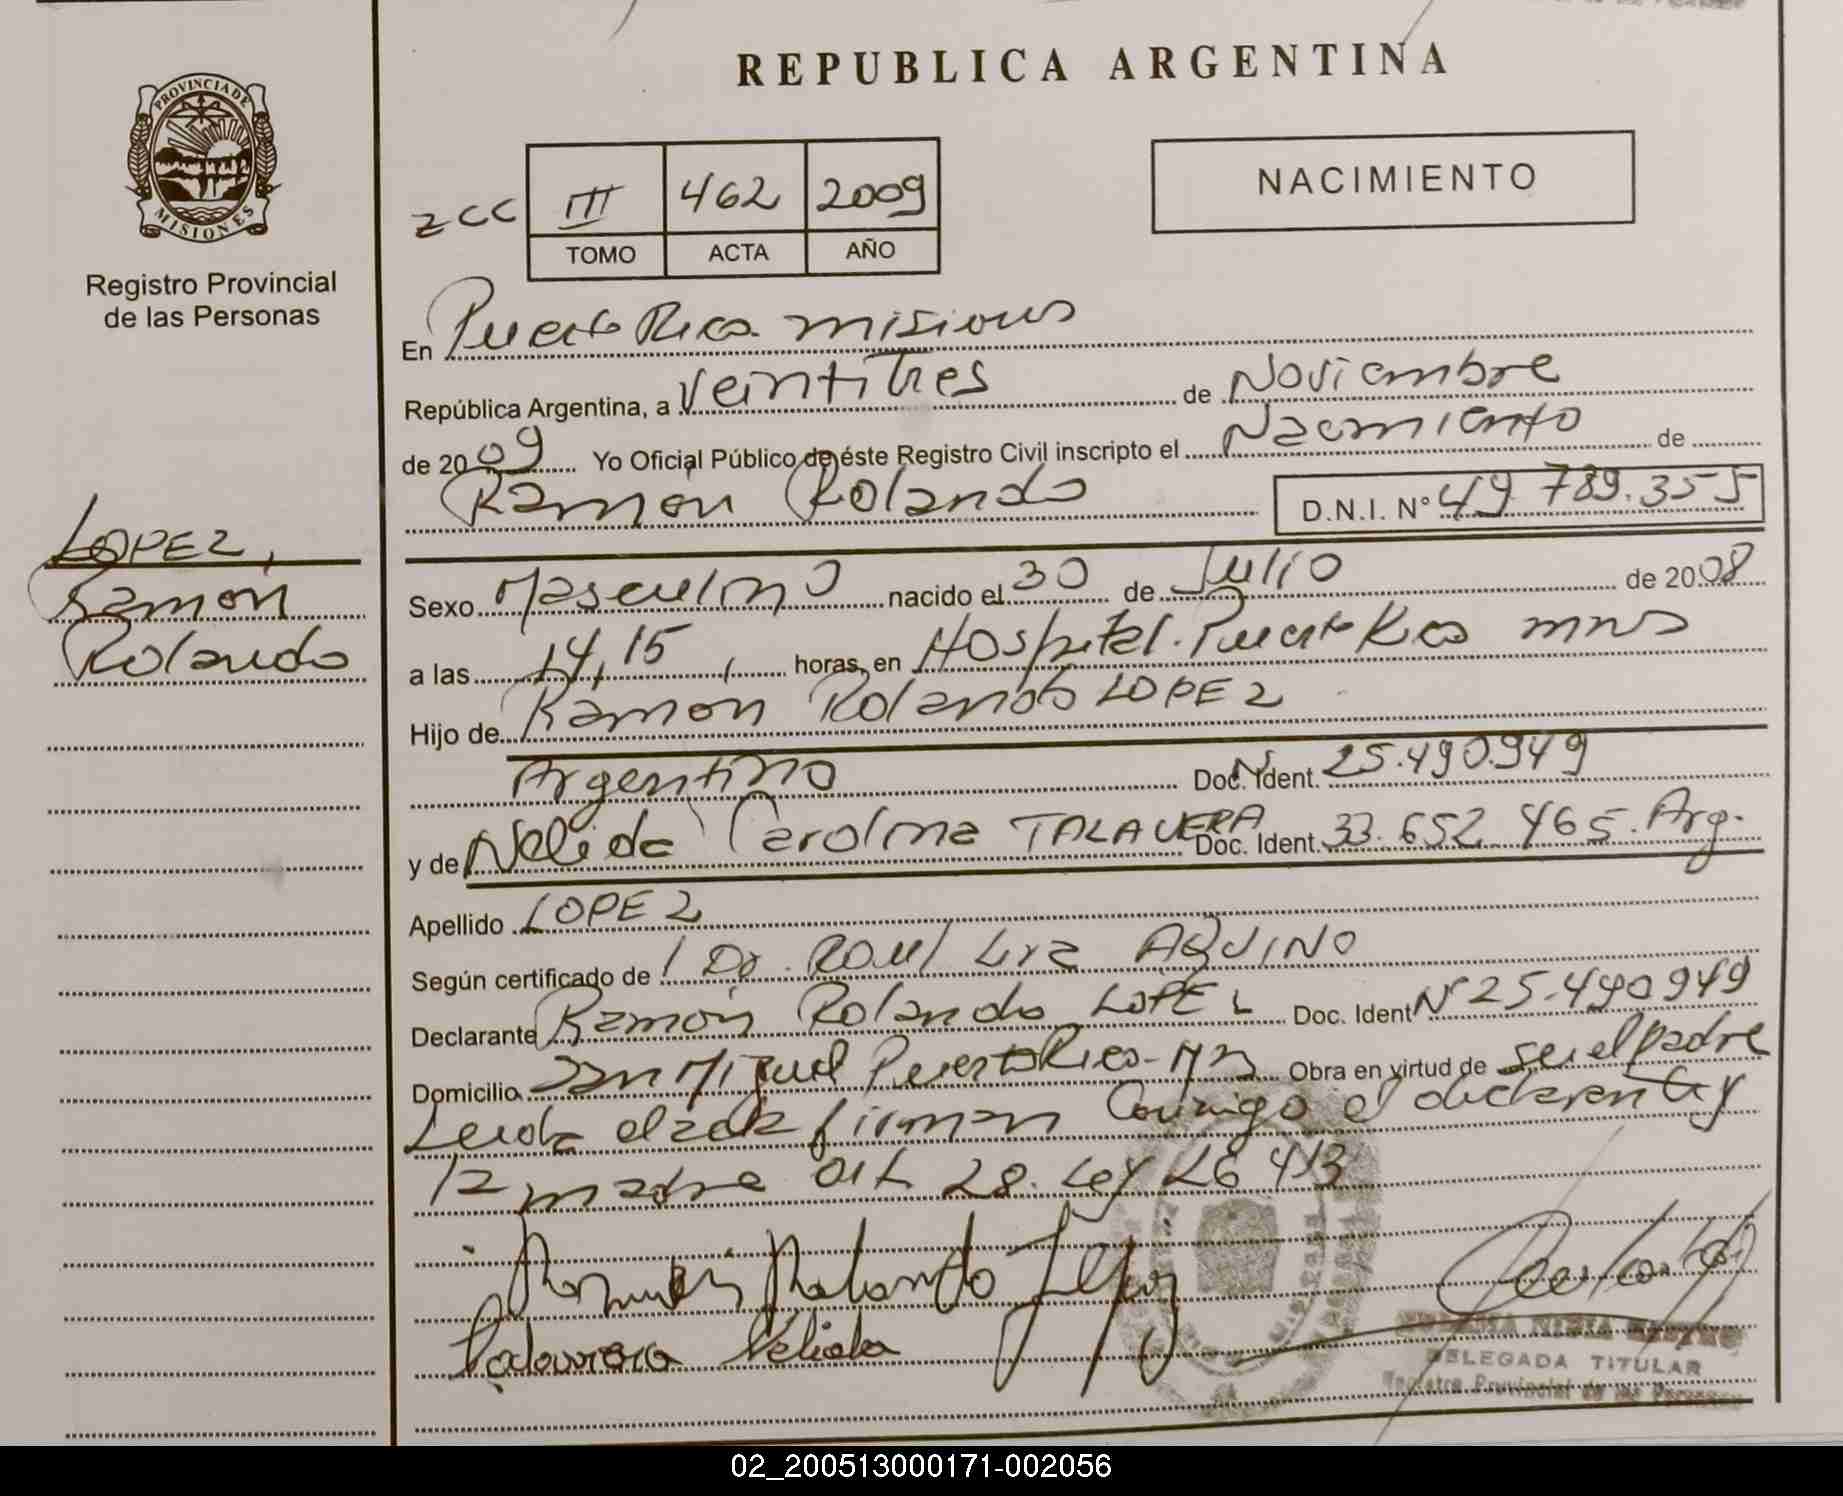 REPUBLICA ARGENTINA
PROVINCIA DE
MISIONES
Registro Provincial
de las Personas
NACIMIENTO
ZCC III 462 2009
TOMO ACTA AÑO
En Puerto Rico misiones
República Argentina, a veintitres de Noviembre
de 2009 Yo Oficial Público de éste Registro Civil inscripto el Nacimiento de
Ramón Rolando D.N.I. N° 49.789.355
LOPEZ,
Ramón
Rolando
Sexo Masculino nacido el 30 de Julio de 2008
a las 14,15 horas, en Hospital. Puerto Rico mns
Hijo de Ramon Rolando LOPEZ
Argentino Doc. Ident. N° 25.490.949
y de Nelida Carolina TALAVERA Doc. Ident. 33.652.465. Arg.
Apellido LOPEZ
Según certificado de Dr. AQUINO
Declarante Ramón Rolando LOPEZ Doc. Ident N° 25.490949
Domicilio San Miguel Puerto Rico - Mn Obra en virtud de ser el padre
Leida el acta firman Conmigo el declarante y
la madre art 28. Ley 26413
Ramon Rolando Lopez
Talavera Nelida
DELEGADA TITULAR
Registro Provincial de las Personas
02_200513000171-002056